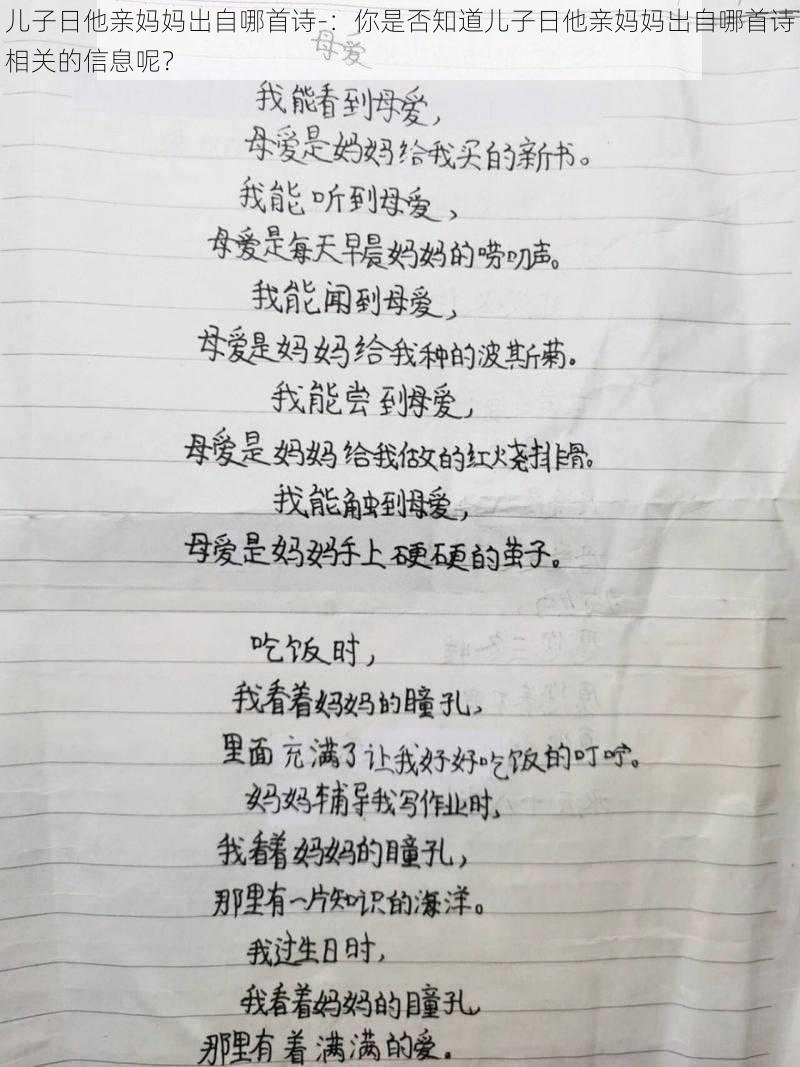 儿子日他亲妈妈出自哪首诗-：你是否知道儿子日他亲妈妈出自哪首诗
相关的信息呢？
母爱
我能看到母爱，
母爱是妈妈给我买的新书。
我能听到母爱，
母爱是每天早晨妈妈的唠叨声。
我能闻到母爱，
母爱是妈妈给我种的波斯菊。
我能尝到母爱，
母爱是妈妈给我做的红火烧排骨。
我能触到母爱，
母爱是妈妈手上硬硬的茧子。
吃饭时，
我看着妈妈的瞳孔，
里面充满了让我好好吃饭的叮咛。
妈妈辅导我写作业时，
我看着妈妈的瞳孔，
那里有一片知识的海洋。
我过生日时，
我看着妈妈的瞳孔，
那里有着满满的爱。